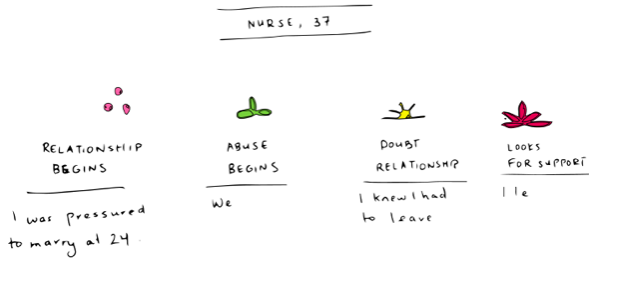 NURSE, 37
RELATIONSHIP
BEGINS
I was pressured
to marry at 24.
ABUSE
BEGINS
We
DOUBT
RELATIONSHIP
I knew I had
to leave
LOOKS
FOR SUPPORT
I le